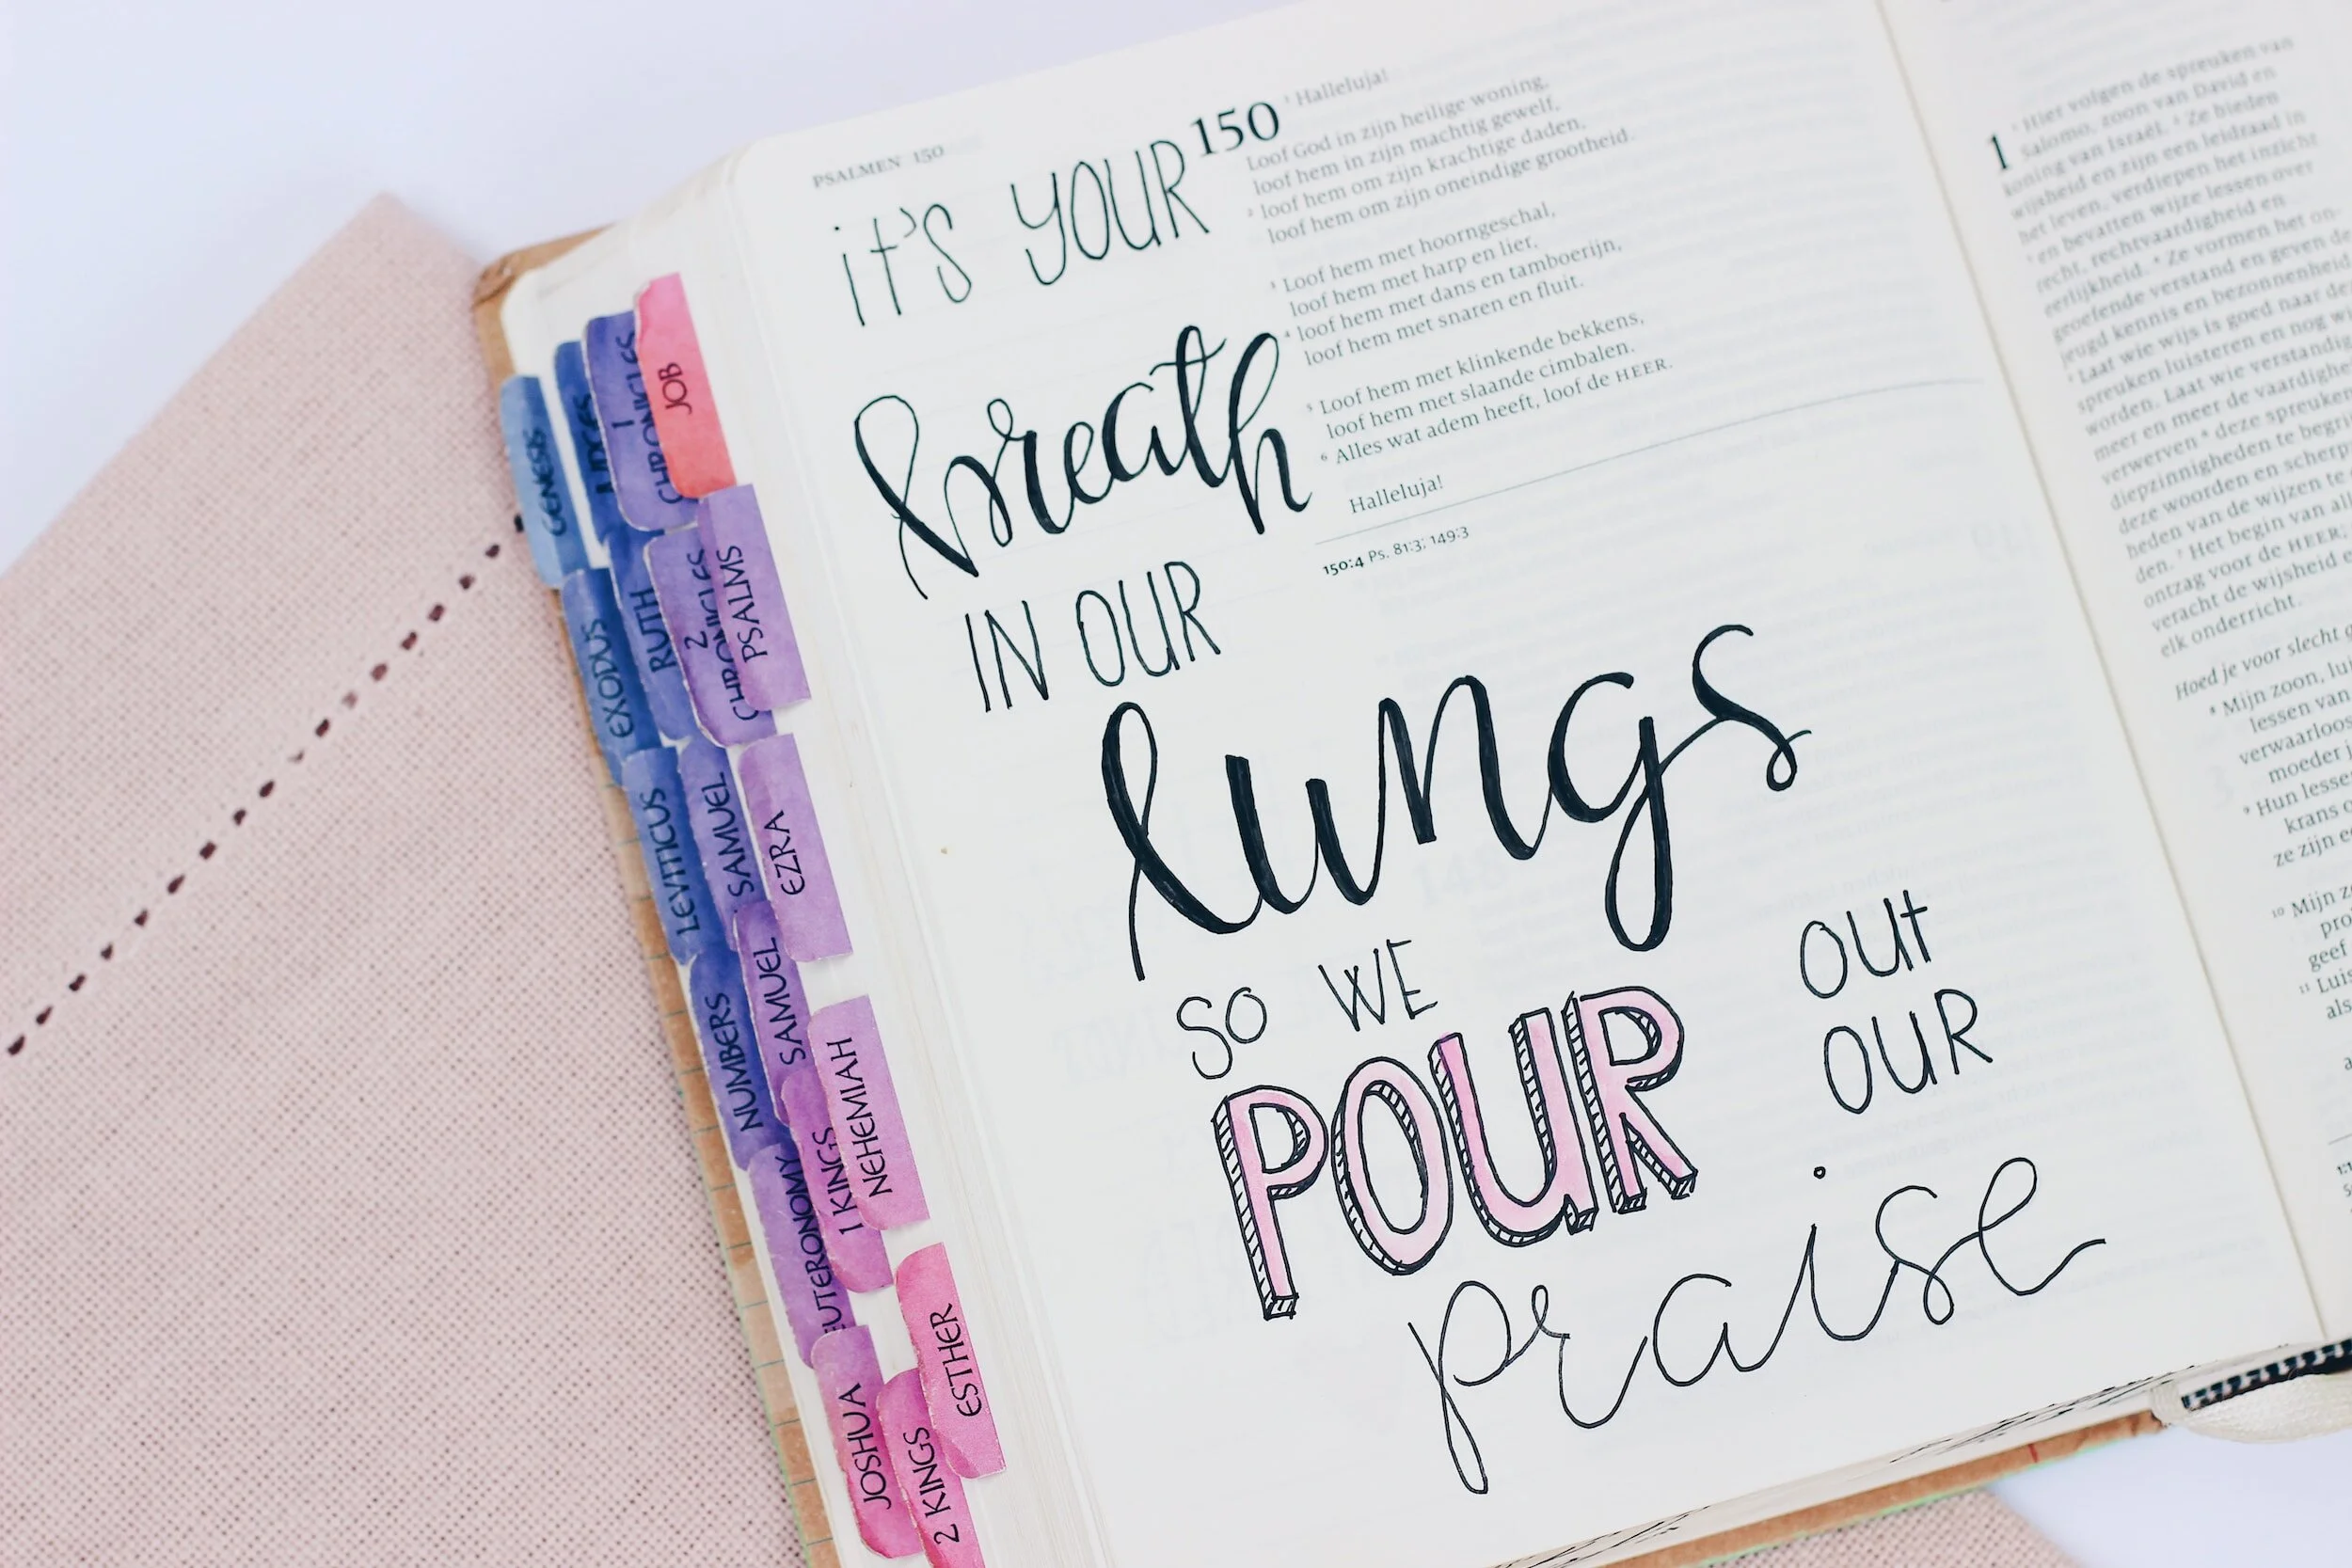 PSALMEN 150
150
1 Halleluja!
Loof God in zijn heilige woning,
loof hem in zijn machtig gewelf,
2 loof hem om zijn krachtige daden,
loof hem om zijn oneindige grootheid.
3 Loof hem met hoorngeschal,
loof hem met harp en lier,
4 loof hem met dans en tamboerijn,
loof hem met snaren en fluit.
5 Loof hem met klinkende bekkens,
loof hem met slaande cimbalen.
6 Alles wat adem heeft, loof de HEER.
Halleluja!
150:4 Ps. 81:3; 149:3
it's YOUR
breath
IN OUR
lungs
SO WE
POUR
OUt
OUR
praise
GENESIS
1
CHRONICLES
JOB
EXODUS
RUTH
2
CHRONICLES
PSALMS
LEVITICUS
SAMUEL
EZRA
NUMBERS
SAMUEL
NEHEMIAH
EUTERONOMY
1 KINGS
ESTHER
JOSHUA
2 KINGS
1
1 Hier volgen de spreuken van
Salomo, zoon van David en
koning van Israël. 2 Ze bieden
wijsheid en zijn een leidraad in
het leven, verdiepen het inzicht
3 en bevatten wijze lessen over
recht, rechtvaardigheid en
eerlijkheid. 4 Ze vormen het on-
geoefende verstand en geven de
jeugd kennis en bezonnenheid
5 Laat wie wijs is goed naar de
spreuken luisteren en nog w
worden. Laat wie verstandig
meer en meer de vaardighe
verwerven 6 deze spreuke
diepzinnigheden te begri
deze woorden en scherp
heden van de wijzen te
den. 7 Het begin van al
ontzag voor de HEER.
veracht de wijsheid e
elk onderricht.
Hoed je voor slecht g
8 Mijn zoon, lui
lessen van
verwaarloos
moeder j
9 Hun lesse
krans o
ze zijn e
10 Mijn z
pro
geef
11 Luis
als